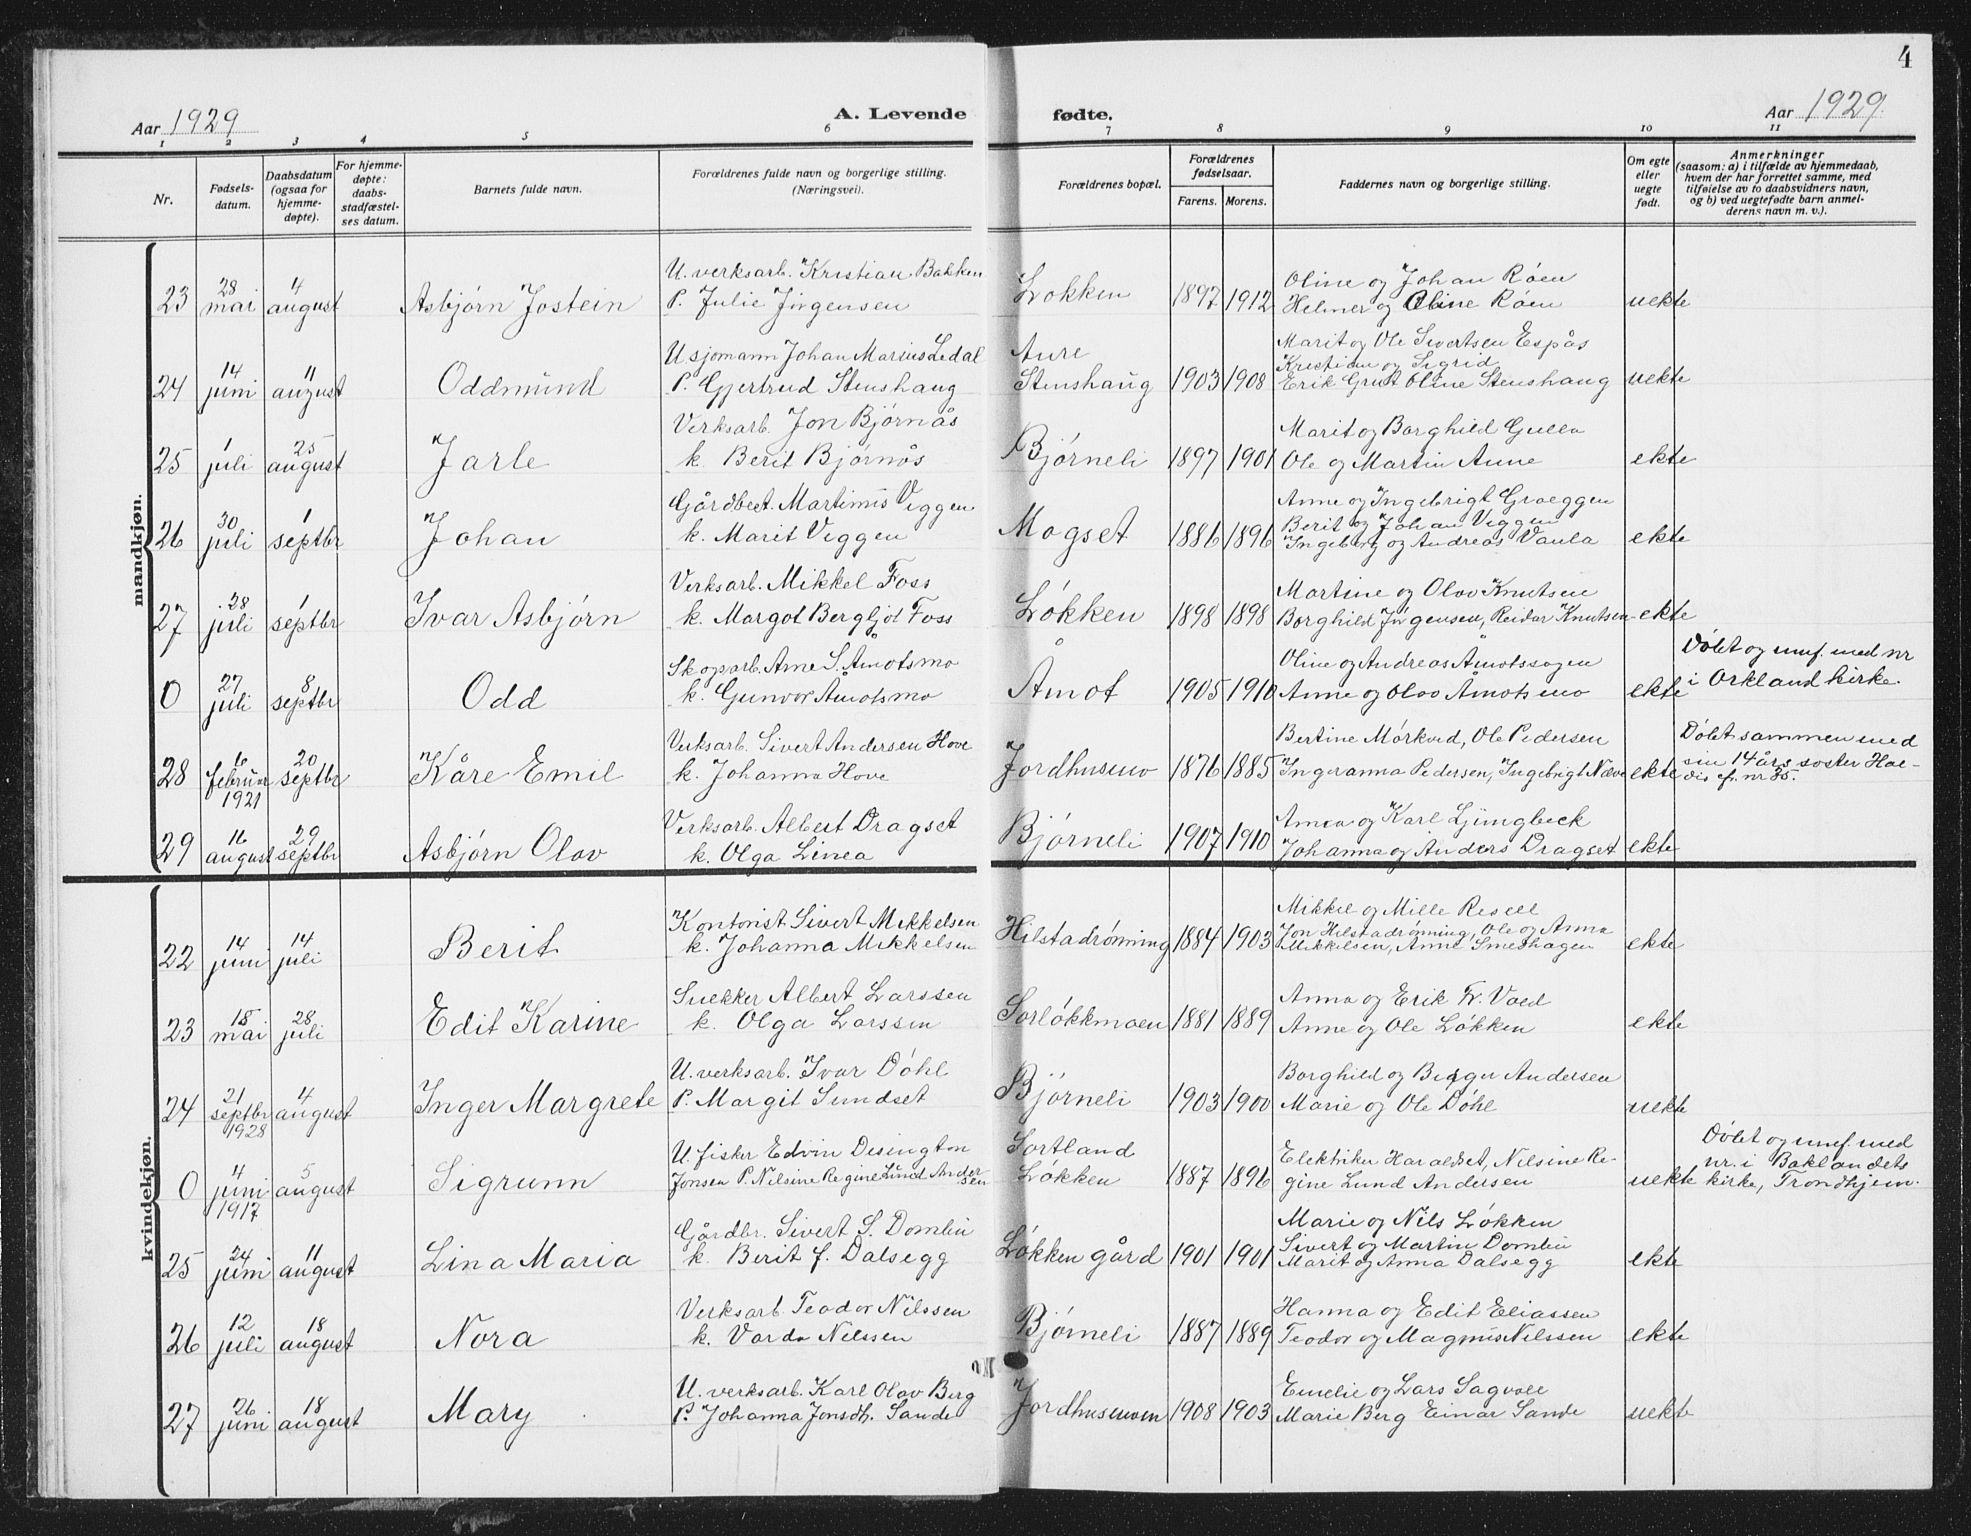 4
Aar 1929 A. Levende fødte. Aar 1929.
1 2 3 4 5 6 7 8 9 10 11
Nr.
Fødsels-
datum.
Daabsdatum
(ogsaa for
hjemme-
døpte).
For hjemme-
døpte:
daabs-
stadfæstel-
ses datum.
Barnets fulde navn.
Forældrenes fulde navn og borgerlige stilling.
(Næringsvei).
Forældrenes bopæl.
Forældrenes
fødselsaar.
Farens. Morens.
Faddernes navn og borgerlige stilling.
Om egte
eller
uegte
født.
Anmerkninger
(saasom: a) i tilfælde av hjemmedaab,
hvem der har forrettet samme, med
tilføielse av to daabsvidners navn,
og b) ved uegtefødte barn anmel-
derens navn m. v.).
mandkjøn.
28 4 U. verksarb. Kristian Bakken Oline og Johan Røen
23 mai august Asbjørn Jostein P. Julie Jørgensen Løkken 1897 1912 Helmer og Oline Røen uekte
14 11 U sjømann Johan Marius Ledal Aure Marit og Ole Sivertsen Espås
Kristian og Sigrid
24 juni august Oddmund P. Gjertrud Stenshaug Stenshaug 1903 1908 Erik Grut Oline Stenshaug uekte
1 25 Verksarb. Jon Bjørnås Marit og Borghild Gulla
25 juli august Jarle k. Berit Bjørnås Bjørneli 1897 1901 Ole og Martin Anne ekte
30 1 Gårdbest. Martinus Viggen Anne og Ingebrigt Græggen
Berit og Johan Viggen
26 juli septbr Johan k. Marit Viggen Mogset 1886 1896 Ingeborg og Andreas Vaula ekte
28 1 Verksarb. Mikkel Foss Martine og Olav Knutsen
27 juli septbr Ivar Asbjørn k. Margot Bergljot Foss Løkken 1898 1898 Borghild Jørgensen, Reidar Knutsen ekte
27 8 Skogsarb. Arne S. Åmotsmo Oline og Andreas Åmotssagen Døbt og innf. med nr
0 juli septbr Odd k. Gunvor Åmotsmo Åmot 1905 1910 Anne og Olav Åmotsmo ekte i Orkland kirke.
6 20 Verksarb. Sivert Andersen Hove Bertine Mørkved, Ole Pedersen Døbt sammen med
28 februar septbr Kåre Emil k. Johanna Hove Jordhusmo 1876 1885 Ingeranna Pedersen, Ingebrigt Næve ekte sin 14 års søster Hæ-
1921 dis cfr. nr 35.
16 29 Verksarb. Albert Dragset Anna og Karl Ljungbeck
29 august septbr Asbjørn Olav k. Olga Linea Bjørneli 1907 1910 Johanna og Anders Dragset ekte
kvindekjøn.
14 14 Kontorist Sivert Mikkelsen Mikkel og Mille Resell
Jon Hilstadrønning, Ole og Anna
22 juni juli Berit k. Johanna Mikkelsen Hilstadrønning 1884 1903 Mikkelsen, Anne Smedhagen ekte
15 28 Snekker Albert Larssen Anna og Erik Fr. Voed
23 mai juli Edit Karine k. Olga Larssen Sørløkkmoen 1881 1889 Anne og Ole Løkken ekte
21 4 U. verksarb. Ivar Døhl Borghild og Birger Andersen
24 septbr august Inger Margrete P. Margit Sundset Bjørneli 1903 1900 Marie og Ole Døhl uekte
1928
4 5 U. fisker Edvin Desington Sortland Elektriker Haraldset, Nilsine Re- Døbt og innf. med
0 juni august Sigrunn Jonsen P. Nilsine Regine Lund Ander Løkken 1887 1896 gine Lund Andersen uekte nr. i Baklandets
1917 sen kirke, Trondhjem.
24 11 Gårdbr. Sivert S. Dombu Marie og Nils Løkken
Sivert og Martin Dombu
25 juni august Lina Maria k. Berit f. Dalsegg Løkken gård 1901 1901 Marit og Anna Dalsegg ekte
12 18 Verksarb. Teodor Nilssen Hanna og Edit Eliassen
26 juli august Nora k. Varda Nilssen Bjørneli 1887 1889 Teodor og Magnus Nilssen ekte
26 18 U. verksarb. Karl Olav Berg Emelie og Lars Sagvole
27 juni august Mary P. Johanna Jonsdh. Sande Jordhusmoen 1908 1903 Marie Berg Einar Sande uekte